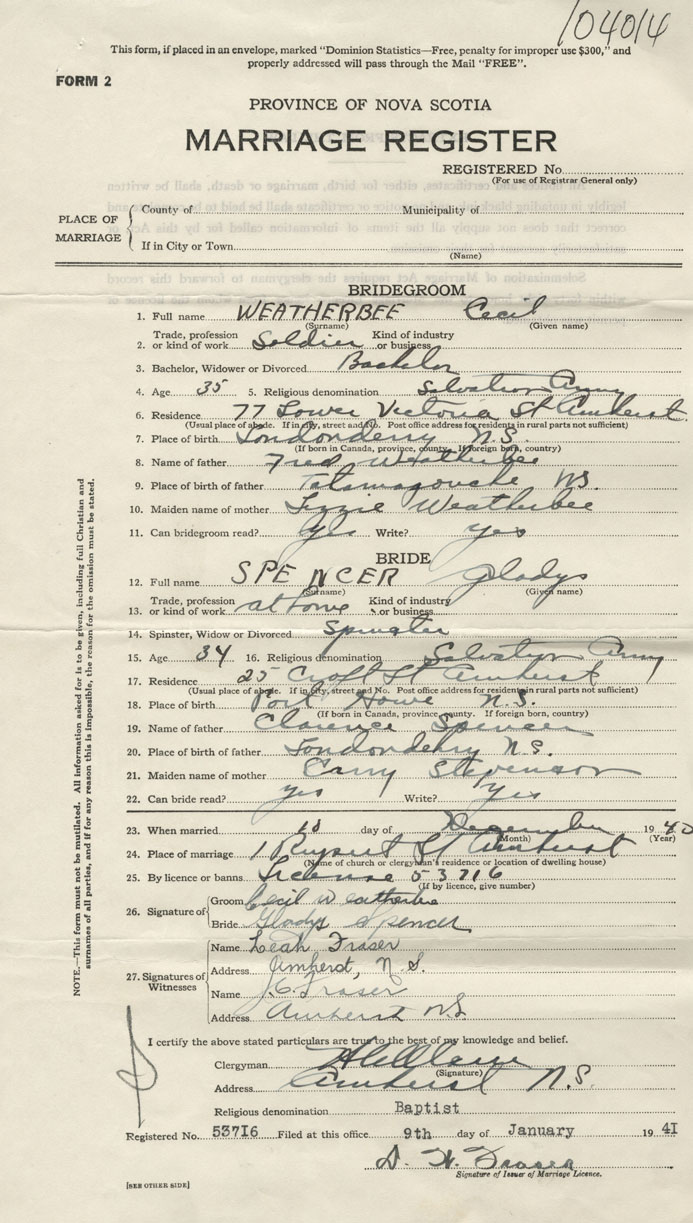 104014
This form, if placed in an envelope, marked "Dominion Statistics—Free, penalty for improper use $300," and
properly addressed will pass through the Mail "FREE".
FORM 2
PROVINCE OF NOVA SCOTIA
MARRIAGE REGISTER
REGISTERED No.
(For use of Registrar General only)
PLACE OF MARRIAGE
County of Municipality of
If in City or Town
(Name)
BRIDEGROOM
1. Full name WEATHERBEE Cecil
(Surname) (Given name)
2. Trade, profession or kind of work Soldier Kind of industry or business
3. Bachelor, Widower or Divorced Bachelor
4. Age 35 5. Religious denomination Salvation Army
6. Residence 77 Lower Victoria St Amherst
(Usual place of abode. If in city, street and No. Post office address for residents in rural parts not sufficient)
7. Place of birth Londonderry N.S.
(If born in Canada, province, county. If foreign born, country)
8. Name of father Fred Weatherbee
9. Place of birth of father Tatamagouche NS.
10. Maiden name of mother Lizzie Weatherbee
11. Can bridegroom read? yes Write? yes
BRIDE
12. Full name SPENCER Gladys
(Surname) (Given name)
13. Trade, profession or kind of work at home Kind of industry or business
14. Spinster, Widow or Divorced Spinster
15. Age 34 16. Religious denomination Salvation Army
17. Residence 25 Croft St Amherst
(Usual place of abode. If in city, street and No. Post office address for residents in rural parts not sufficient)
18. Place of birth Port Howe N.S.
(If born in Canada, province, county. If foreign born, country)
19. Name of father Clarence Spencer
20. Place of birth of father Londonderry N.S.
21. Maiden name of mother Carry Stevenson
22. Can bride read? yes Write? yes
23. When married 10 day of December 1940
(Month) (Year)
24. Place of marriage 1 Rupert St Amherst
(Name of church or clergyman's residence or location of dwelling house)
25. By licence or banns License 53716
(If by licence, give number)
26. Signature of
Groom Cecil Weatherbee
Bride Gladys Spencer
27. Signatures of Witnesses
Name Leah Fraser
Address Amherst, N.S.
Name J.C. Fraser
Address Amherst N.S.
I certify the above stated particulars are true to the best of my knowledge and belief.
Clergyman
(Signature)
Address Amherst N.S.
Religious denomination Baptist
Registered No. 53716 Filed at this office 9th day of January 1941
D. W. Fraser
Signature of Issuer of Marriage Licence.
[SEE OTHER SIDE]
NOTE.—This form must not be mutilated. All information asked for is to be given, including full Christian and
surnames of all parties, and if for any reason this is impossible, the reason for the omission must be stated.